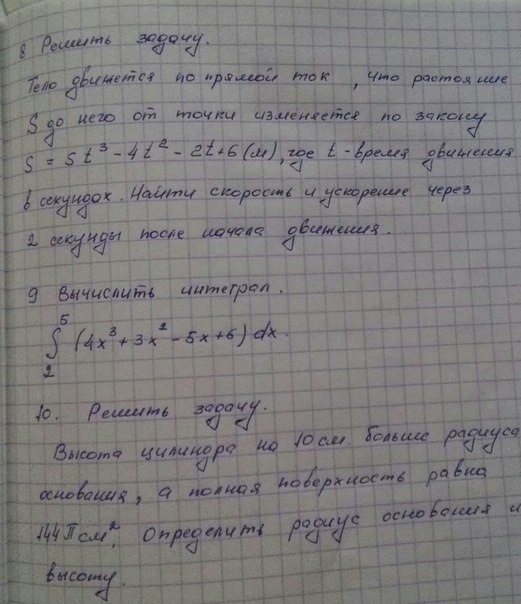 8 Решить задачу.
Тело движется по прямой ток, что растояние
S до него от точки изменяется по закону
S = 5t³ - 4t² - 2t + 6 (м), где t - время движения
в секундох. Найти скорость и ускорение через
2 секунды после начала движения.
9 Вычислить интеграл.
5
∫ (4x³ + 3x² - 5x + 6) dx.
2
10. Решить задачу.
Высота цилиндра на 10 см больше радиуса
основания, а полная поверхность равна
144П см². Определить радиус основания и
высоту.